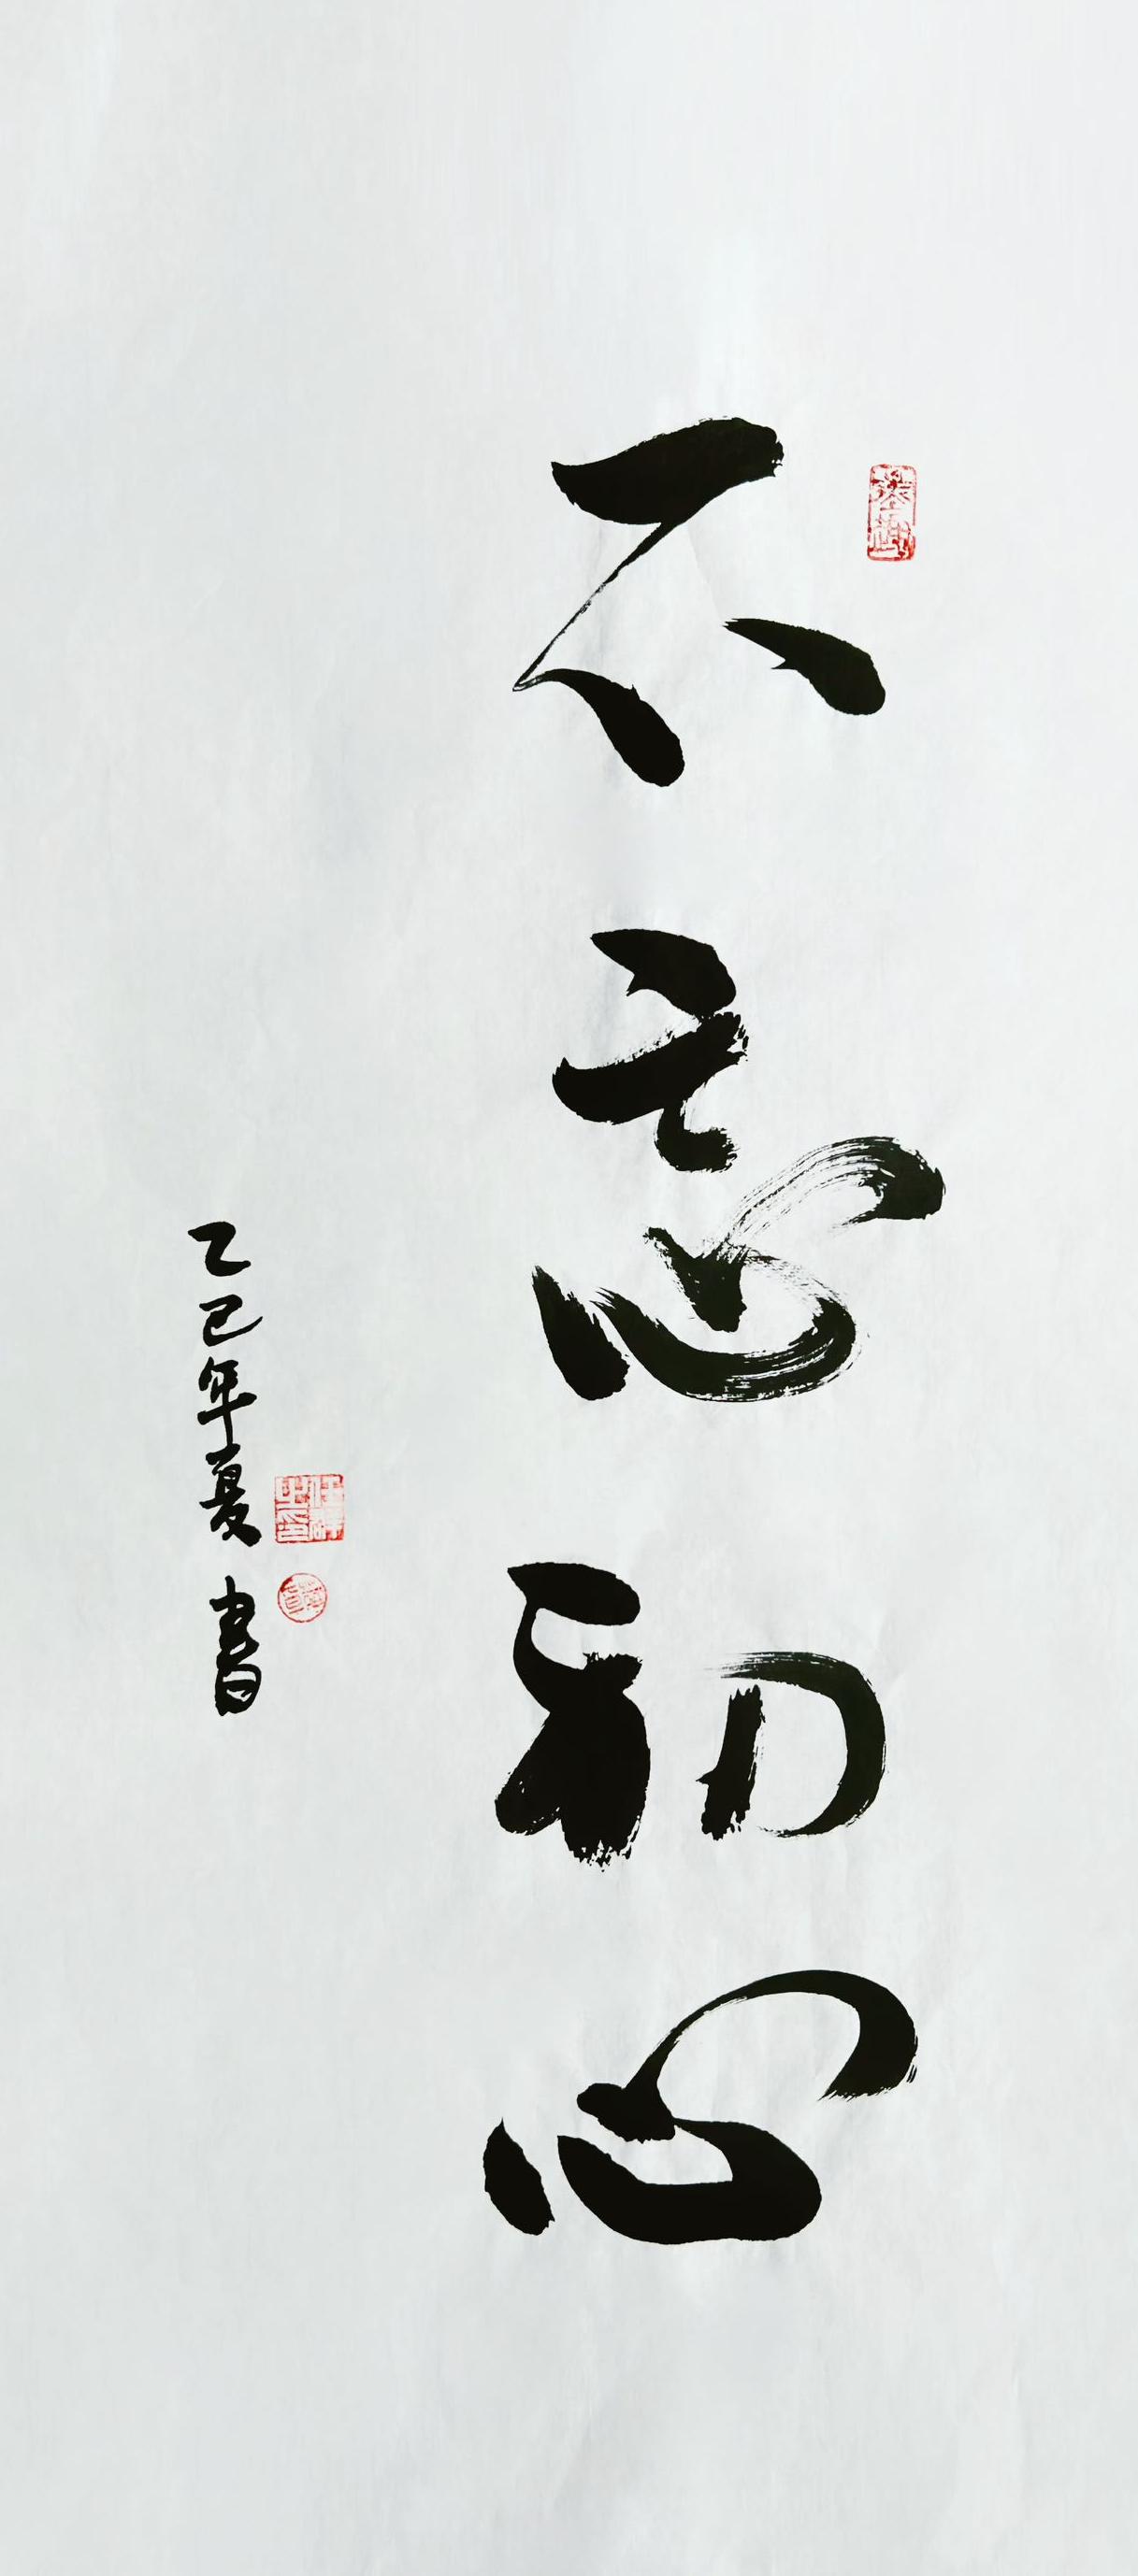 不忘初心
乙巳年夏 書